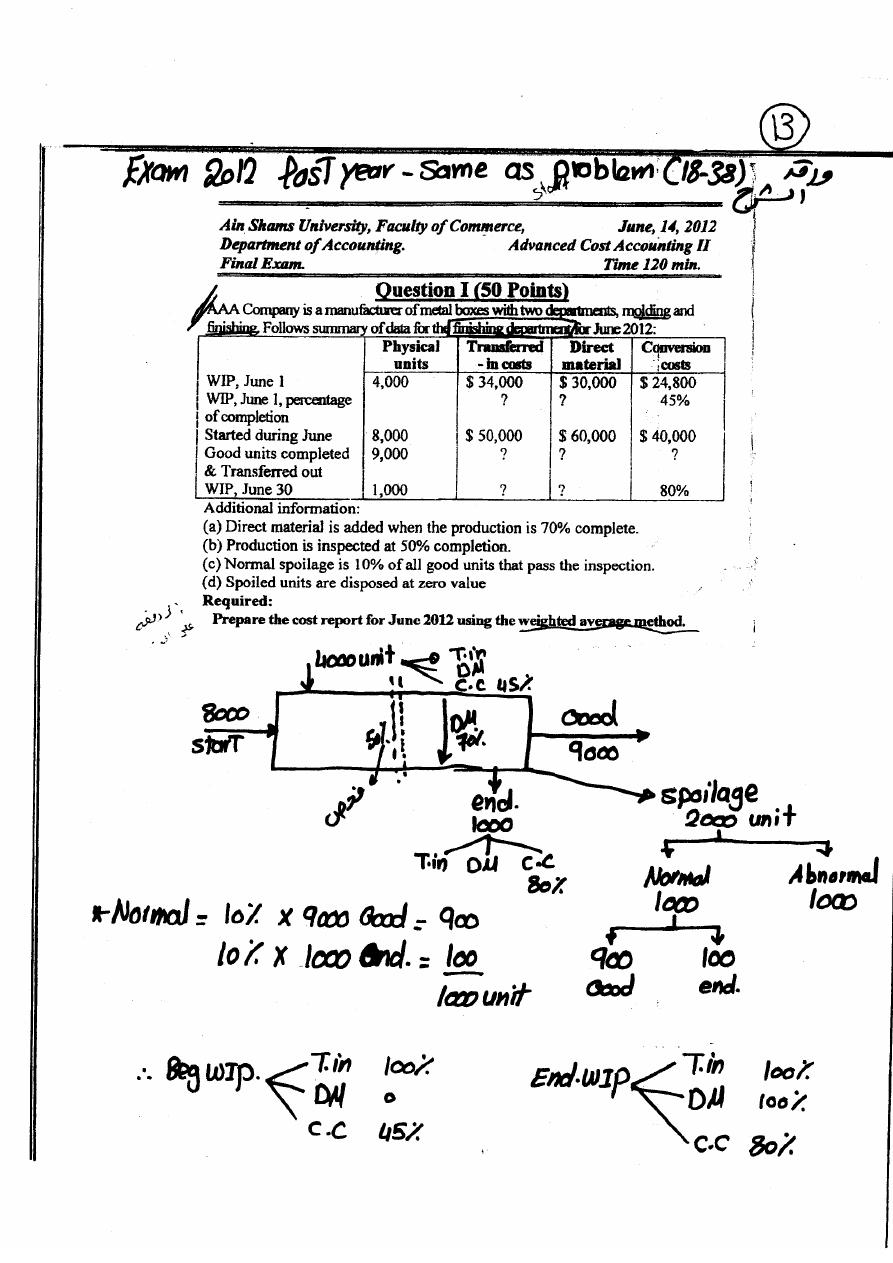 13
Exam 2012 Past year - Same as problem (18-38)
start
ورقة
الشرح
Ain Shams University, Faculty of Commerce, June, 14, 2012
Department of Accounting. Advanced Cost Accounting II
Final Exam. Time 120 min.
Question I (50 Points)
AAA Company is a manufacturer of metal boxes with two departments, molding and
finishing. Follows summary of data for the finishing department for June 2012:
Physical units Transferred - in costs Direct material Conversion costs
WIP, June 1 4,000 $ 34,000 $ 30,000 $ 24,800
WIP, June 1, percentage of completion ? ? 45%
Started during June 8,000 $ 50,000 $ 60,000 $ 40,000
Good units completed & Transferred out 9,000 ? ? ?
WIP, June 30 1,000 ? ? 80%
Additional information:
(a) Direct material is added when the production is 70% complete.
(b) Production is inspected at 50% completion.
(c) Normal spoilage is 10% of all good units that pass the inspection.
(d) Spoiled units are disposed at zero value
Required:
Prepare the cost report for June 2012 using the weighted average method.
4000 unit T.in
DM
C.C 45%
8000
start
50%
DM
70%
Good
9000
فحص
end.
1000
T.in DM C.C
80%
spoilage
2000 unit
Normal
1000
Abnormal
1000
900
Good
100
end.
*Normal = 10% x 9000 Good = 900
10% x 1000 end. = 100
1000 unit
∴ Beg WIP. T.in 100%
DM 0
C.C 45%
End.WIP T.in 100%
DM 100%
C.C 80%